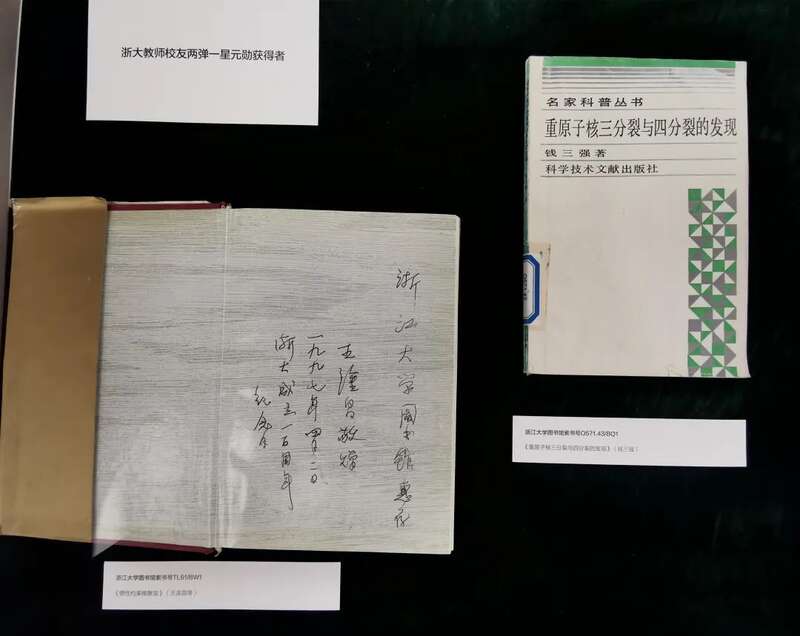 浙大教师校友两弹一星元勋获得者
名家科普丛书
重原子核三分裂与四分裂的发现
钱三强著
科学技术文献出版社
浙江大学图书馆惠存
王淦昌敬赠
一九九七年四月二日
浙大成立一百周年
纪念日
浙江大学图书馆索书号O571.43/BQ1
《重原子核三分裂与四分裂的发现》（钱三强）
浙江大学图书馆索书号TL61/BW1
《惯性约束核聚变》（王淦昌等）